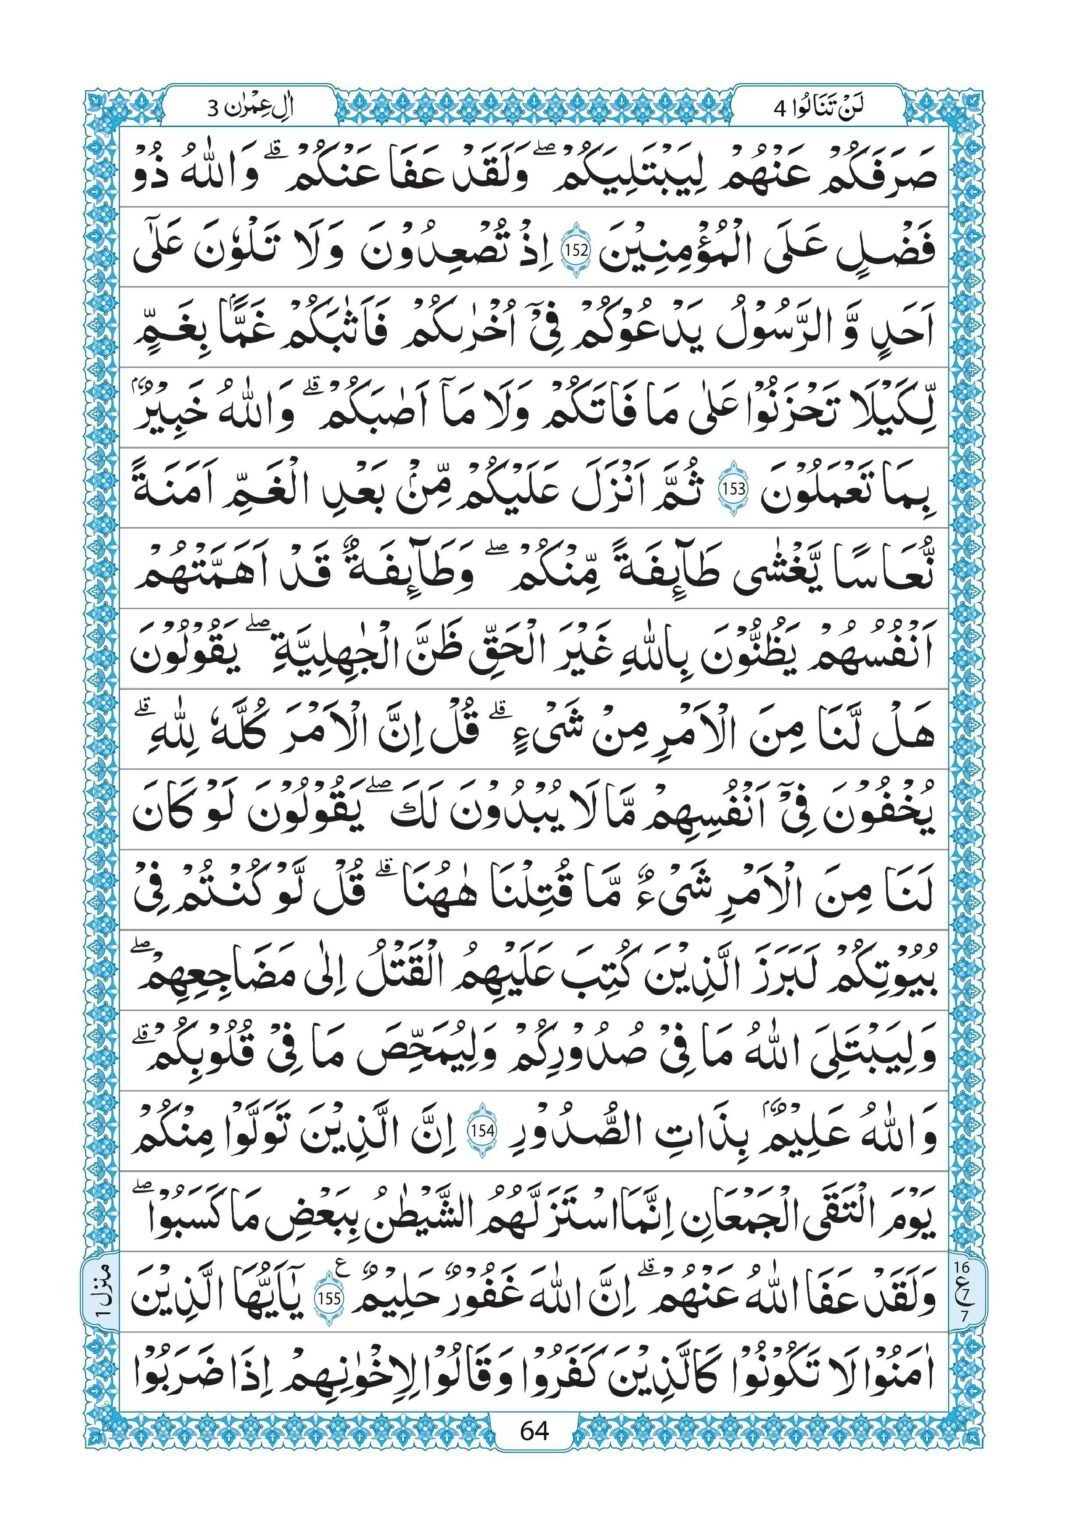 لَنْ تَنَالُوا 4
اٰلِ عِمْرٰن 3
صَرَفَكُمْ عَنْهُمْ لِيَبْتَلِيَكُمْ ۖ وَلَقَدْ عَفَا عَنْكُمْ ۗ وَاللّٰهُ ذُوْ
فَضْلٍ عَلَى الْمُؤْمِنِيْنَ 152 اِذْ تُصْعِدُوْنَ وَلَا تَلْوٗنَ عَلٰٓى
اَحَدٍ وَّ الرَّسُوْلُ يَدْعُوْكُمْ فِيْٓ اُخْرٰىكُمْ فَاَثٰبَكُمْ غَمًّۢا بِغَمٍّ
لِّكَيْلَا تَحْزَنُوْا عَلٰى مَا فَاتَكُمْ وَلَا مَآ اَصٰبَكُمْ ۗ وَاللّٰهُ خَبِيْرٌۢ
بِمَا تَعْمَلُوْنَ 153 ثُمَّ اَنْزَلَ عَلَيْكُمْ مِّنْۢ بَعْدِ الْغَمِّ اَمَنَةً
نُّعَاسًا يَّغْشٰى طَآئِفَةً مِّنْكُمْ ۖ وَطَآئِفَةٌ قَدْ اَهَمَّتْهُمْ
اَنْفُسُهُمْ يَظُنُّوْنَ بِاللّٰهِ غَيْرَ الْحَقِّ ظَنَّ الْجٰهِلِيَّةِ ۖ يَقُوْلُوْنَ
هَلْ لَّنَا مِنَ الْاَمْرِ مِنْ شَيْءٍ ۗ قُلْ اِنَّ الْاَمْرَ كُلَّهٗ لِلّٰهِ ۗ
يُخْفُوْنَ فِيْٓ اَنْفُسِهِمْ مَّا لَا يُبْدُوْنَ لَكَ ۖ يَقُوْلُوْنَ لَوْ كَانَ
لَنَا مِنَ الْاَمْرِ شَيْءٌ مَّا قُتِلْنَا هٰهُنَا ۗ قُلْ لَّوْ كُنْتُمْ فِيْ
بُيُوْتِكُمْ لَبَرَزَ الَّذِيْنَ كُتِبَ عَلَيْهِمُ الْقَتْلُ اِلٰى مَضَاجِعِهِمْ ۖ
وَلِيَبْتَلِيَ اللّٰهُ مَا فِيْ صُدُوْرِكُمْ وَلِيُمَحِّصَ مَا فِيْ قُلُوْبِكُمْ ۗ
وَاللّٰهُ عَلِيْمٌۢ بِذَاتِ الصُّدُوْرِ 154 اِنَّ الَّذِيْنَ تَوَلَّوْا مِنْكُمْ
يَوْمَ الْتَقَى الْجَمْعَانِ اِنَّمَا اسْتَزَلَّهُمُ الشَّيْطٰنُ بِبَعْضِ مَا كَسَبُوْا ۖ
وَلَقَدْ عَفَا اللّٰهُ عَنْهُمْ ۗ اِنَّ اللّٰهَ غَفُوْرٌ حَلِيْمٌ 155 ع يٰٓاَيُّهَا الَّذِيْنَ
اٰمَنُوْا لَا تَكُوْنُوْا كَالَّذِيْنَ كَفَرُوْا وَقَالُوْا لِاِخْوٰنِهِمْ اِذَا ضَرَبُوْا
16
ع 7
7
منزل 1
64